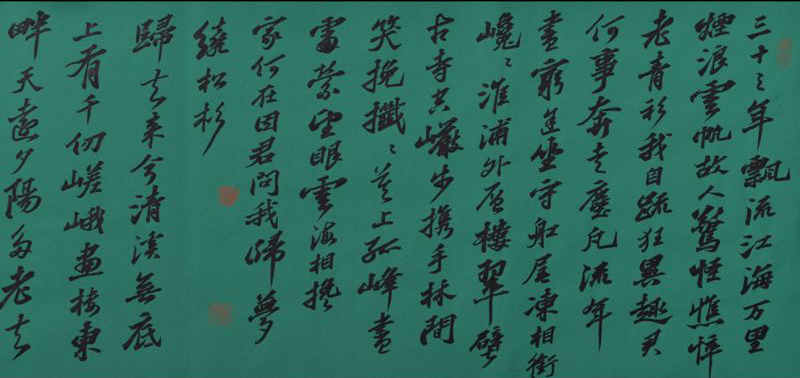 三十三年飄流江海万里
煙浪雲帆故人驚怪憔悴
老青衫我自疏狂異趣君
何事奔走塵凡流年
盡窮途坐守舡尾凍相銜
巉〻淮浦外層樓翠壁
古寺空巖步携手林間
笑挽攕〻莫上孤峰盡
處縈望眼雲海相攙
家何在因君問我歸夢
繞松杉
歸去來兮清溪無底
上有千仞嵯峨畫樓東
畔天遠夕陽多老去